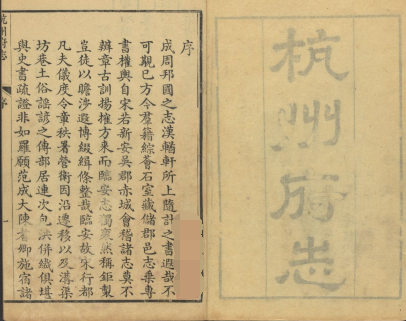 杭州府志
序
成周邦國之志漢輶軒所上隨計之書遐哉不
可覿已方今羣籍綜薈石室藏儲郡邑志乘專
書權輿自宋若新安吳郡赤城會稽諸志莫不
辧章古訓揚搉方來而臨安志獨裒然稱鉅製
豈徒以瞻涉遐博綴緝條整哉臨安故宋行都
凡夫儀度令章秩署營衛因沿遷移以及溝渠
坊巷土俗謡諺之傳部居連次包泱併織俱堪
與史書疏證非如羅願范成大陳耆卿施宿諸
杭州府志
序
一